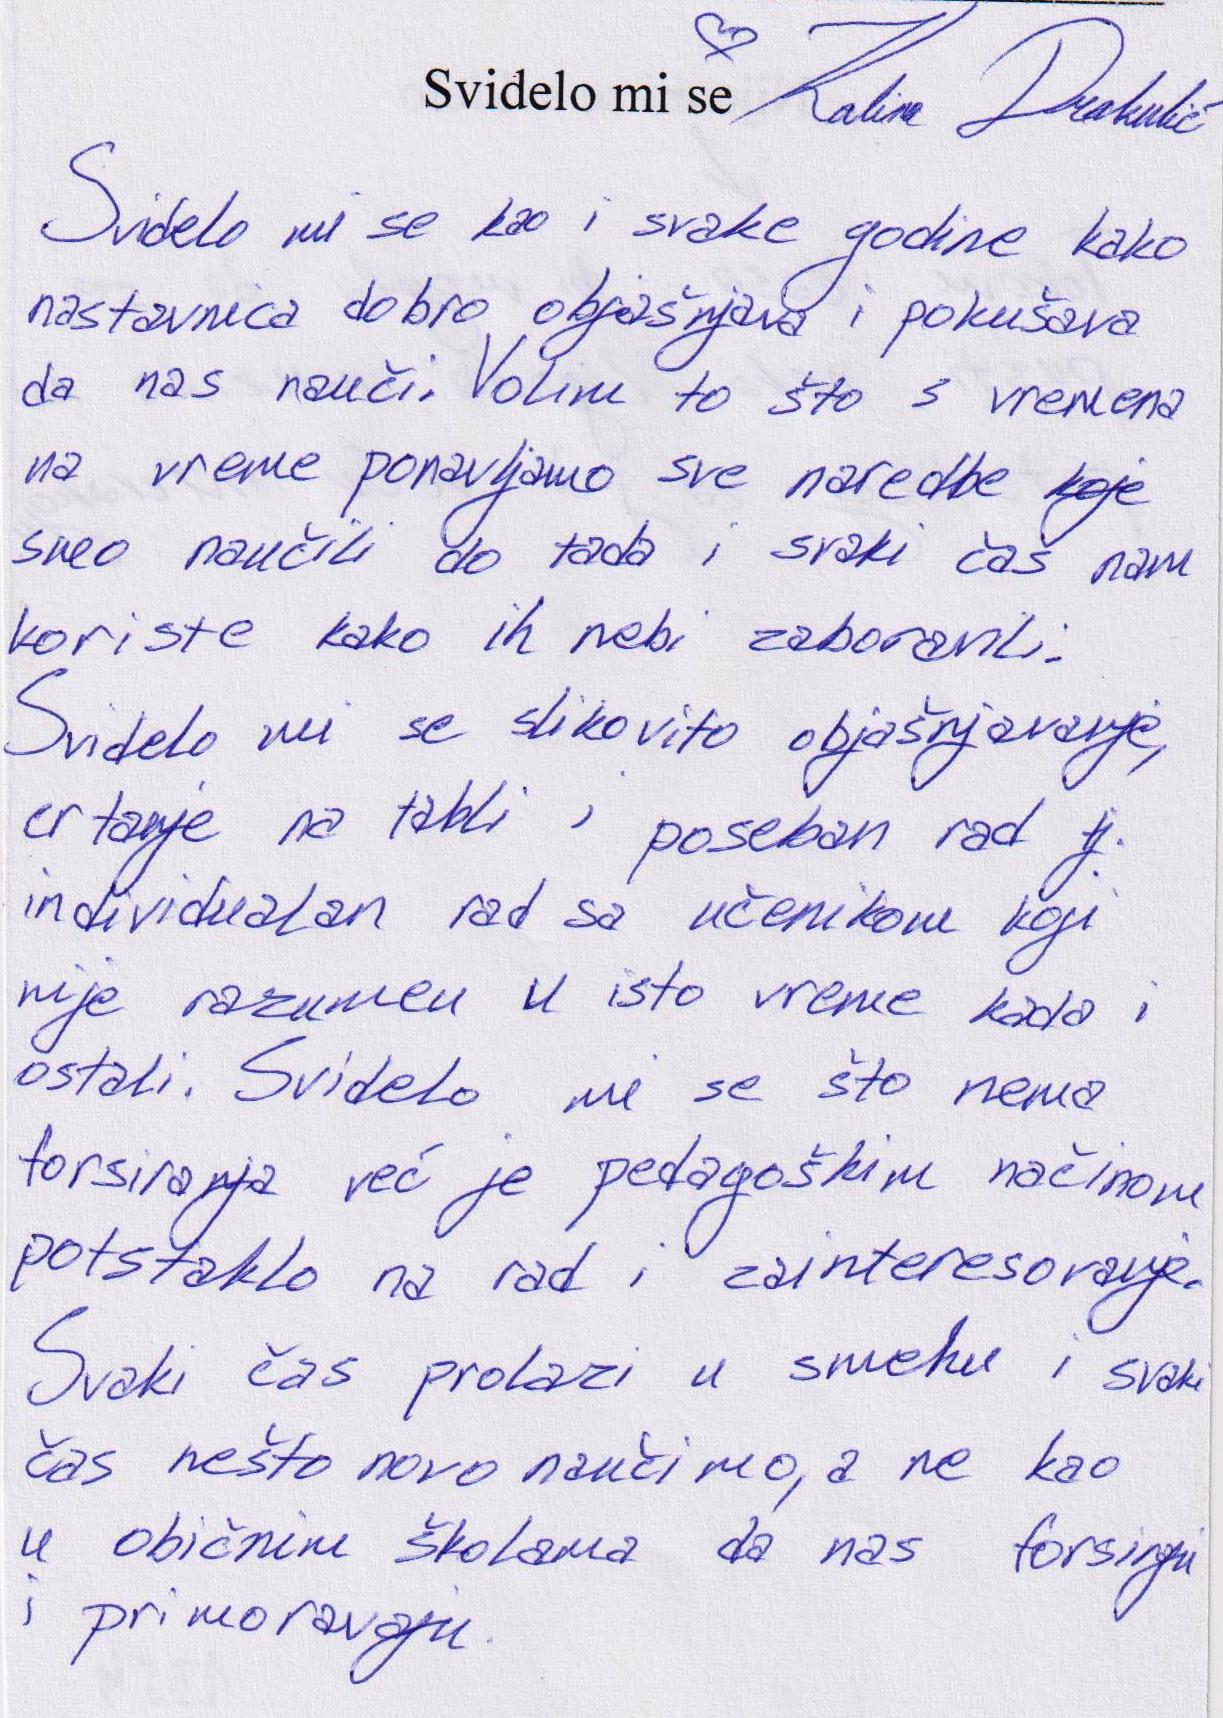 Svidelo mi se Kalina Drakulić
Svidelo mi se kao i svake godine kako
nastavnica dobro objašnjava i pokušava
da nas nauči. Volim to što s vremena
na vreme ponavljamo sve naredbe koje
smo naučili do tada i svaki čas nam
koriste kako ih nebi zaboravili.
Svidelo mi se slikovito objašnjavanje,
crtanje na tabli i poseban rad tj.
individualan rad sa učenikom koji
nije razumeu u isto vreme kada i
ostali. Svidelo mi se što nema
forsiranja već je pedagoškim načinom
potstaklo na rad i zainteresovanje.
Svaki čas prolazi u smehu i svaki
čas nešto novo naučimo, a ne kao
u običnim školama da nas forsiraju
i primoravaju.